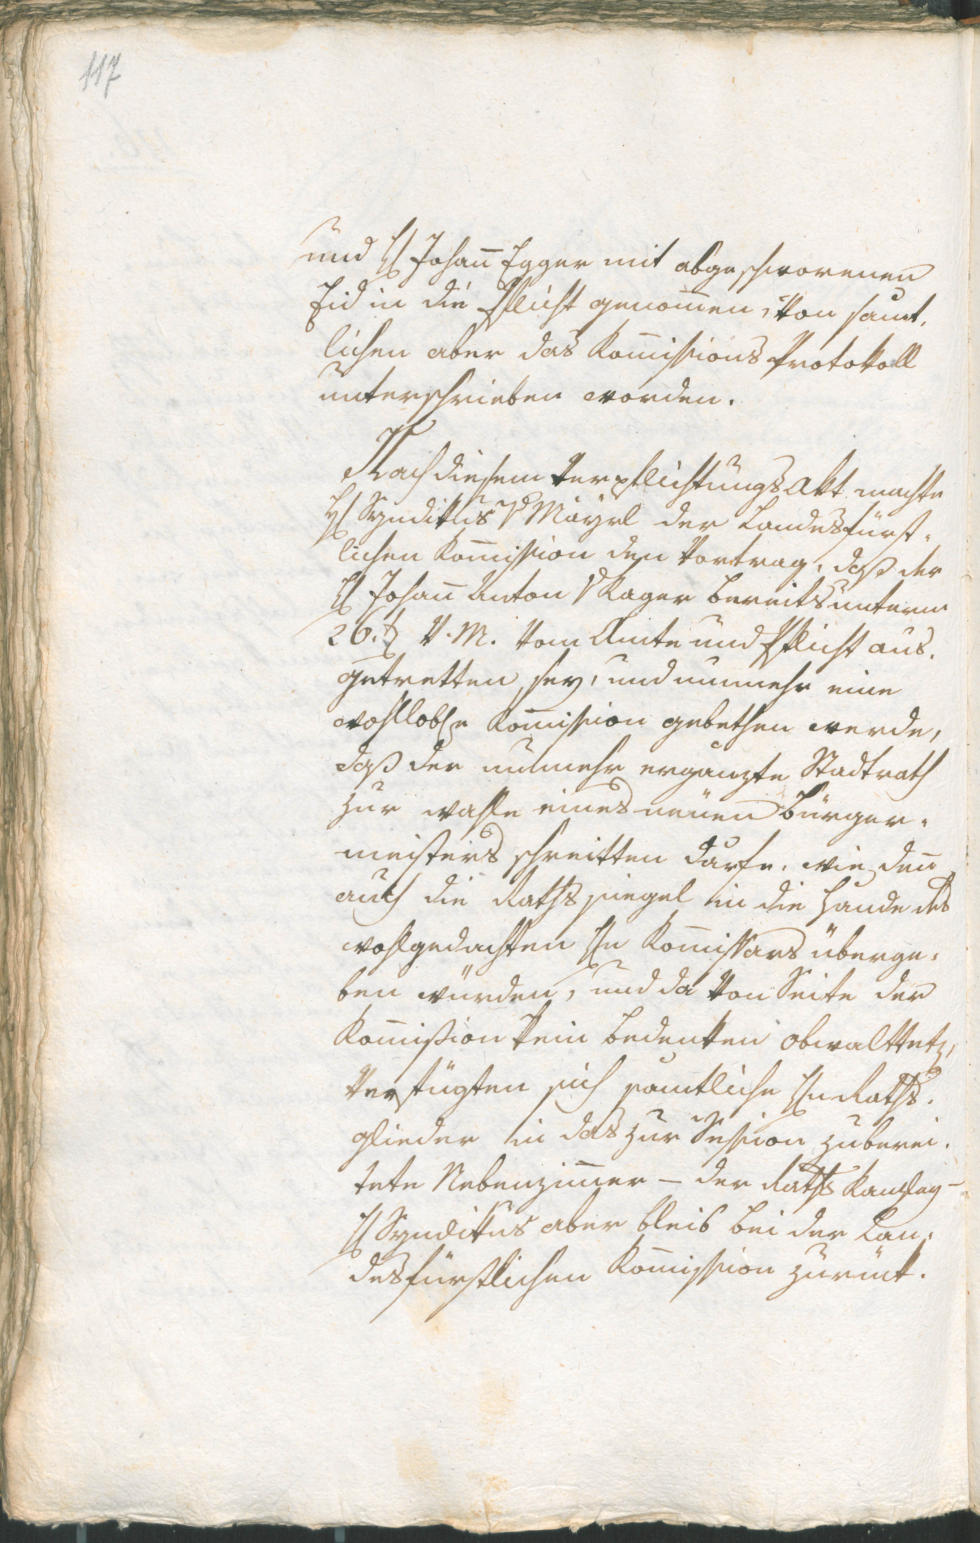 117
und H Johañ Egger mit abgeschworenen
Eid in die Pflicht genom̄en, von sämt-
lichen aber das Kom̄issions Protokoll
unterschrieben worden.
Nach diesem Verpflichtungs Akt machte
H Syndikus v Mayrl der Landesfürst-
lichen Kom̄ission den Vortrag, daß der
H Johañ Anton v Rager bereits unterm
26. V. M. vom Amte und Pflicht aus-
getretten sey, und nunmehr eine
wohllobe Kom̄ission gebethen werde,
daß der nunmehr ergänzte Stadtrath
zur wahle eines neuen Bürger-
meisters schreitten därfe, wie deñ
auch die Rathssiegel in die Hände des
wohlgedachten Hn Kom̄issars überge-
ben würden, und da von Seite der
Kom̄ission kein bedenken obwalttete,
verfügten sich sämtliche Hn Raths-
glieder in das zur Session zuberei-
tete Nebenzim̄er – der Raths Kanzley –
H Syndikus aber bleib bei der Lan-
desfürstlichen Kom̄ission zurück.